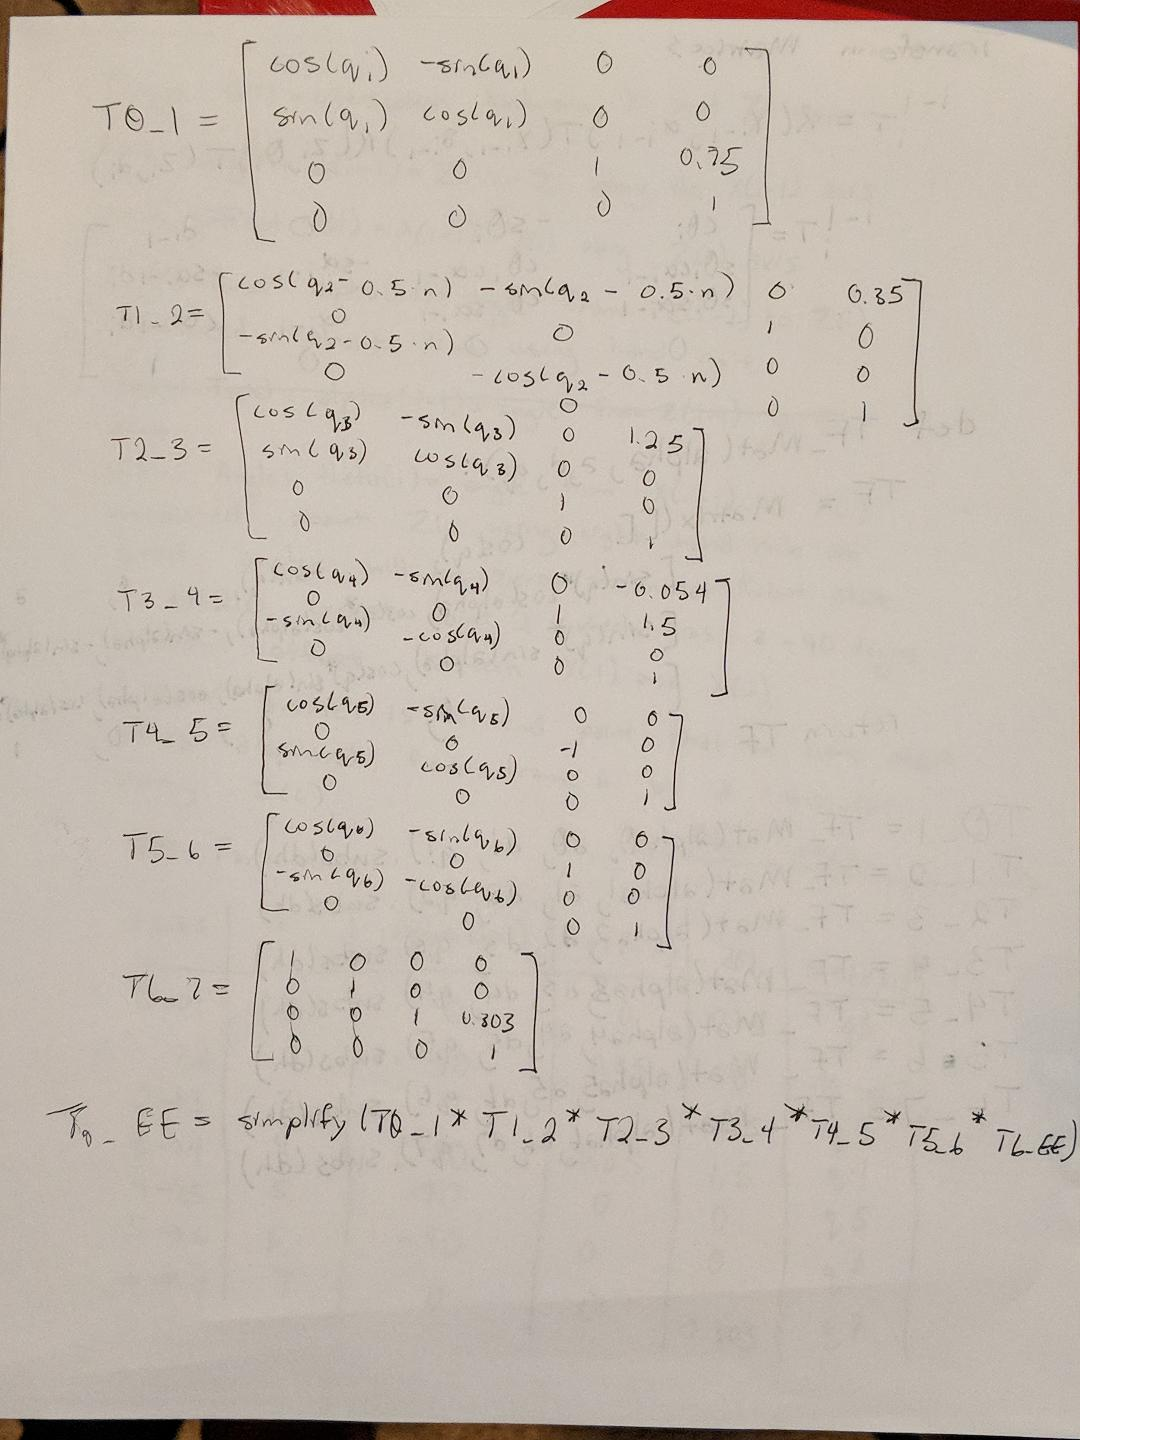 cos(q1) -sin(q1) 0 0
T0_1 = sin(q1) cos(q1) 0 0
0 0 1 0.75
0 0 0 1
cos(q2-0.5·n) -sin(q2 - 0.5·n) 0 0.35
T1_2= 0 0 1 0
-sin(q2-0.5·n) -cos(q2-0.5·n) 0 0
0 0 0 1
cos(q3) -sin(q3) 0 1.25
T2_3= sin(q3) cos(q3) 0 0
0 0 1 0
0 0 0 1
cos(q4) -sin(q4) 0 -0.054
T3_4= 0 0 1 1.5
-sin(q4) -cos(q4) 0 0
0 0 0 1
cos(q5) -sin(q5) 0 0
T4_5= 0 0 -1 0
sin(q5) cos(q5) 0 0
0 0 0 1
cos(q6) -sin(q6) 0 0
T5_6= 0 0 1 0
-sin(q6) -cos(q6) 0 0
0 0 0 1
1 0 0 0
T6_7= 0 1 0 0
0 0 1 0.303
0 0 0 1
T0_EE = simplify (T0_1* T1_2* T2_3* T3_4* T4_5* T5_6* T6_EE)